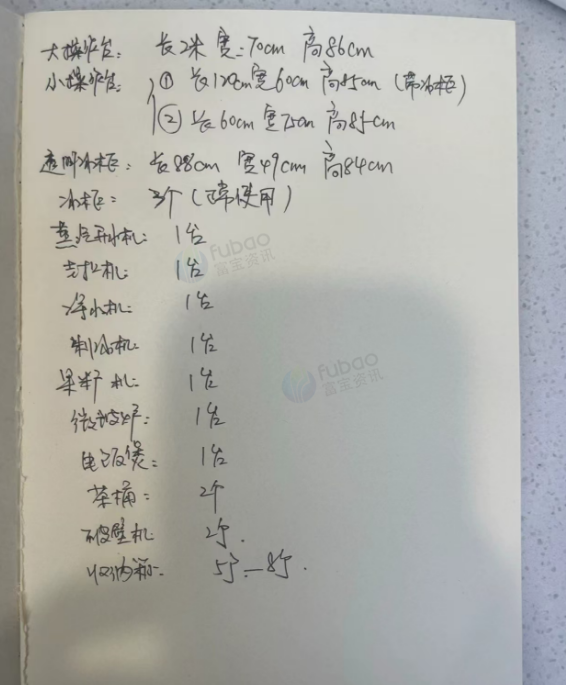 大操作台: 长2米 宽:70cm 高86cm
小操作台: ① 长120cm宽60cm 高85cm (带冰柜)
② 长60cm 宽75cm 高85cm
透明冰柜: 长88cm 宽49cm 高84cm
冰柜: 3个 (正常使用)
蒸汽开水机: 1台
fubao
富宝资讯
封扣机: 1台
净水机: 1台
制冰机: 1台
果糖机: 1台
fubao
富宝资讯
微波炉: 1台
电饭煲: 1台
茶桶: 2个
破壁机: 2个.
收纳称: 5个—8个.